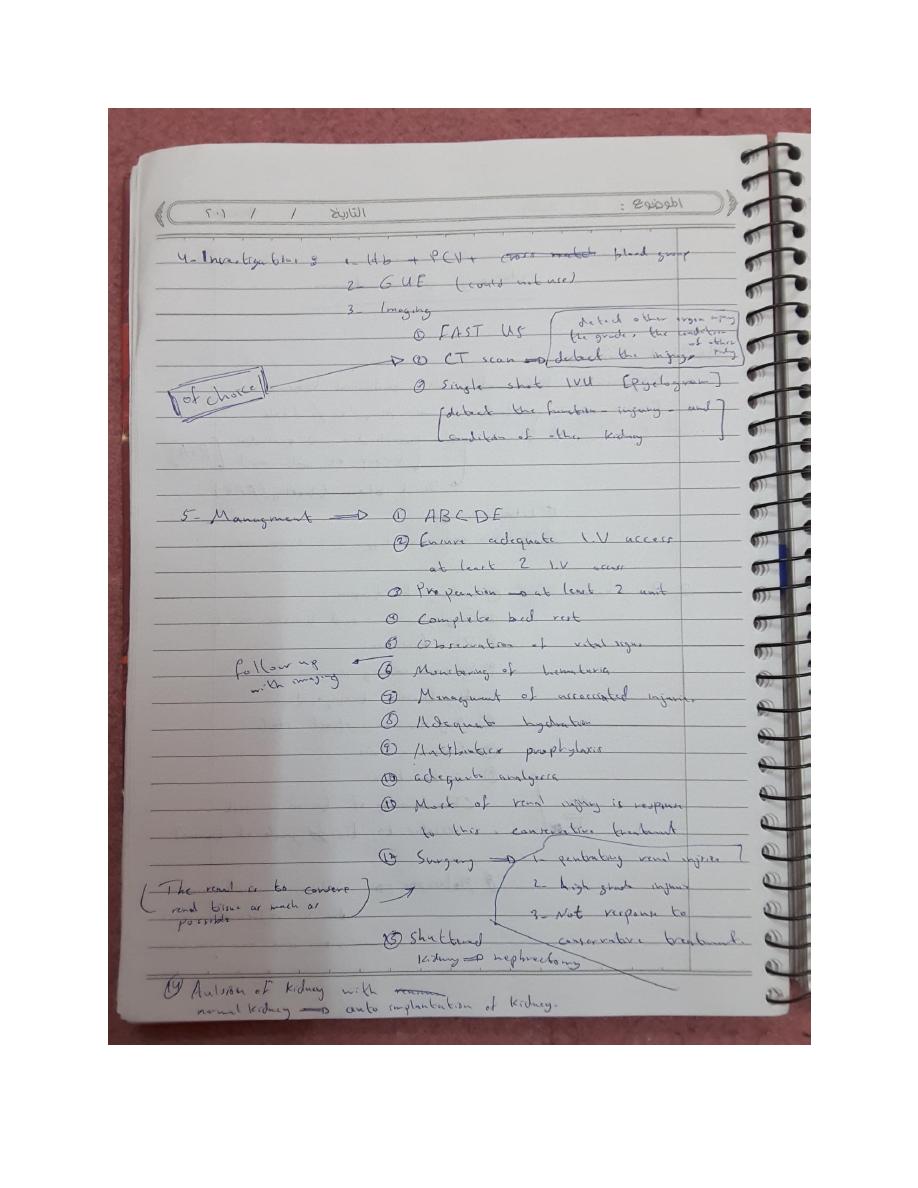 الموضوع :
التاريخ / / ٢٠١
4- Investigations 1- Hb + PCV + cross match blood group
2- GUE (could not use)
3- Imaging
① FAST US
detect other organ injury
the grade, the condition
of other
② CT scan ⇒ detect the injury,
of choice
③ Single shot IVU [Pyelogram]
[detect the function - injury - and
condition of other kidney]
5- Managment ⇒ ① ABCDE
② Ensure adequate I.V access
at least 2 I.V access
③ Preparation → at least 2 unit
④ Complete bed rest
⑤ Observation of vital signs
follow up
with imaging
⑥ Monitoring of hematuria
⑦ Managment of associated injuries
⑧ Adequate hydration
⑨ Antibiotics prophylaxis
⑩ adequate analgesia
⑪ Most of renal injury is response
to this conservative treatment
⑫ Surgery ⇒ 1- pentrating renal injuries
2- high grade injury
3- Not response to
conservative treatment.
(The renal is to conserve
renal tissue as much as
possible)
⑬ Shuttered
kidney ⇒ nephrectomy
⑭ Aulsion of kidney with
normal kidney ⇒ auto implantation of kidney.